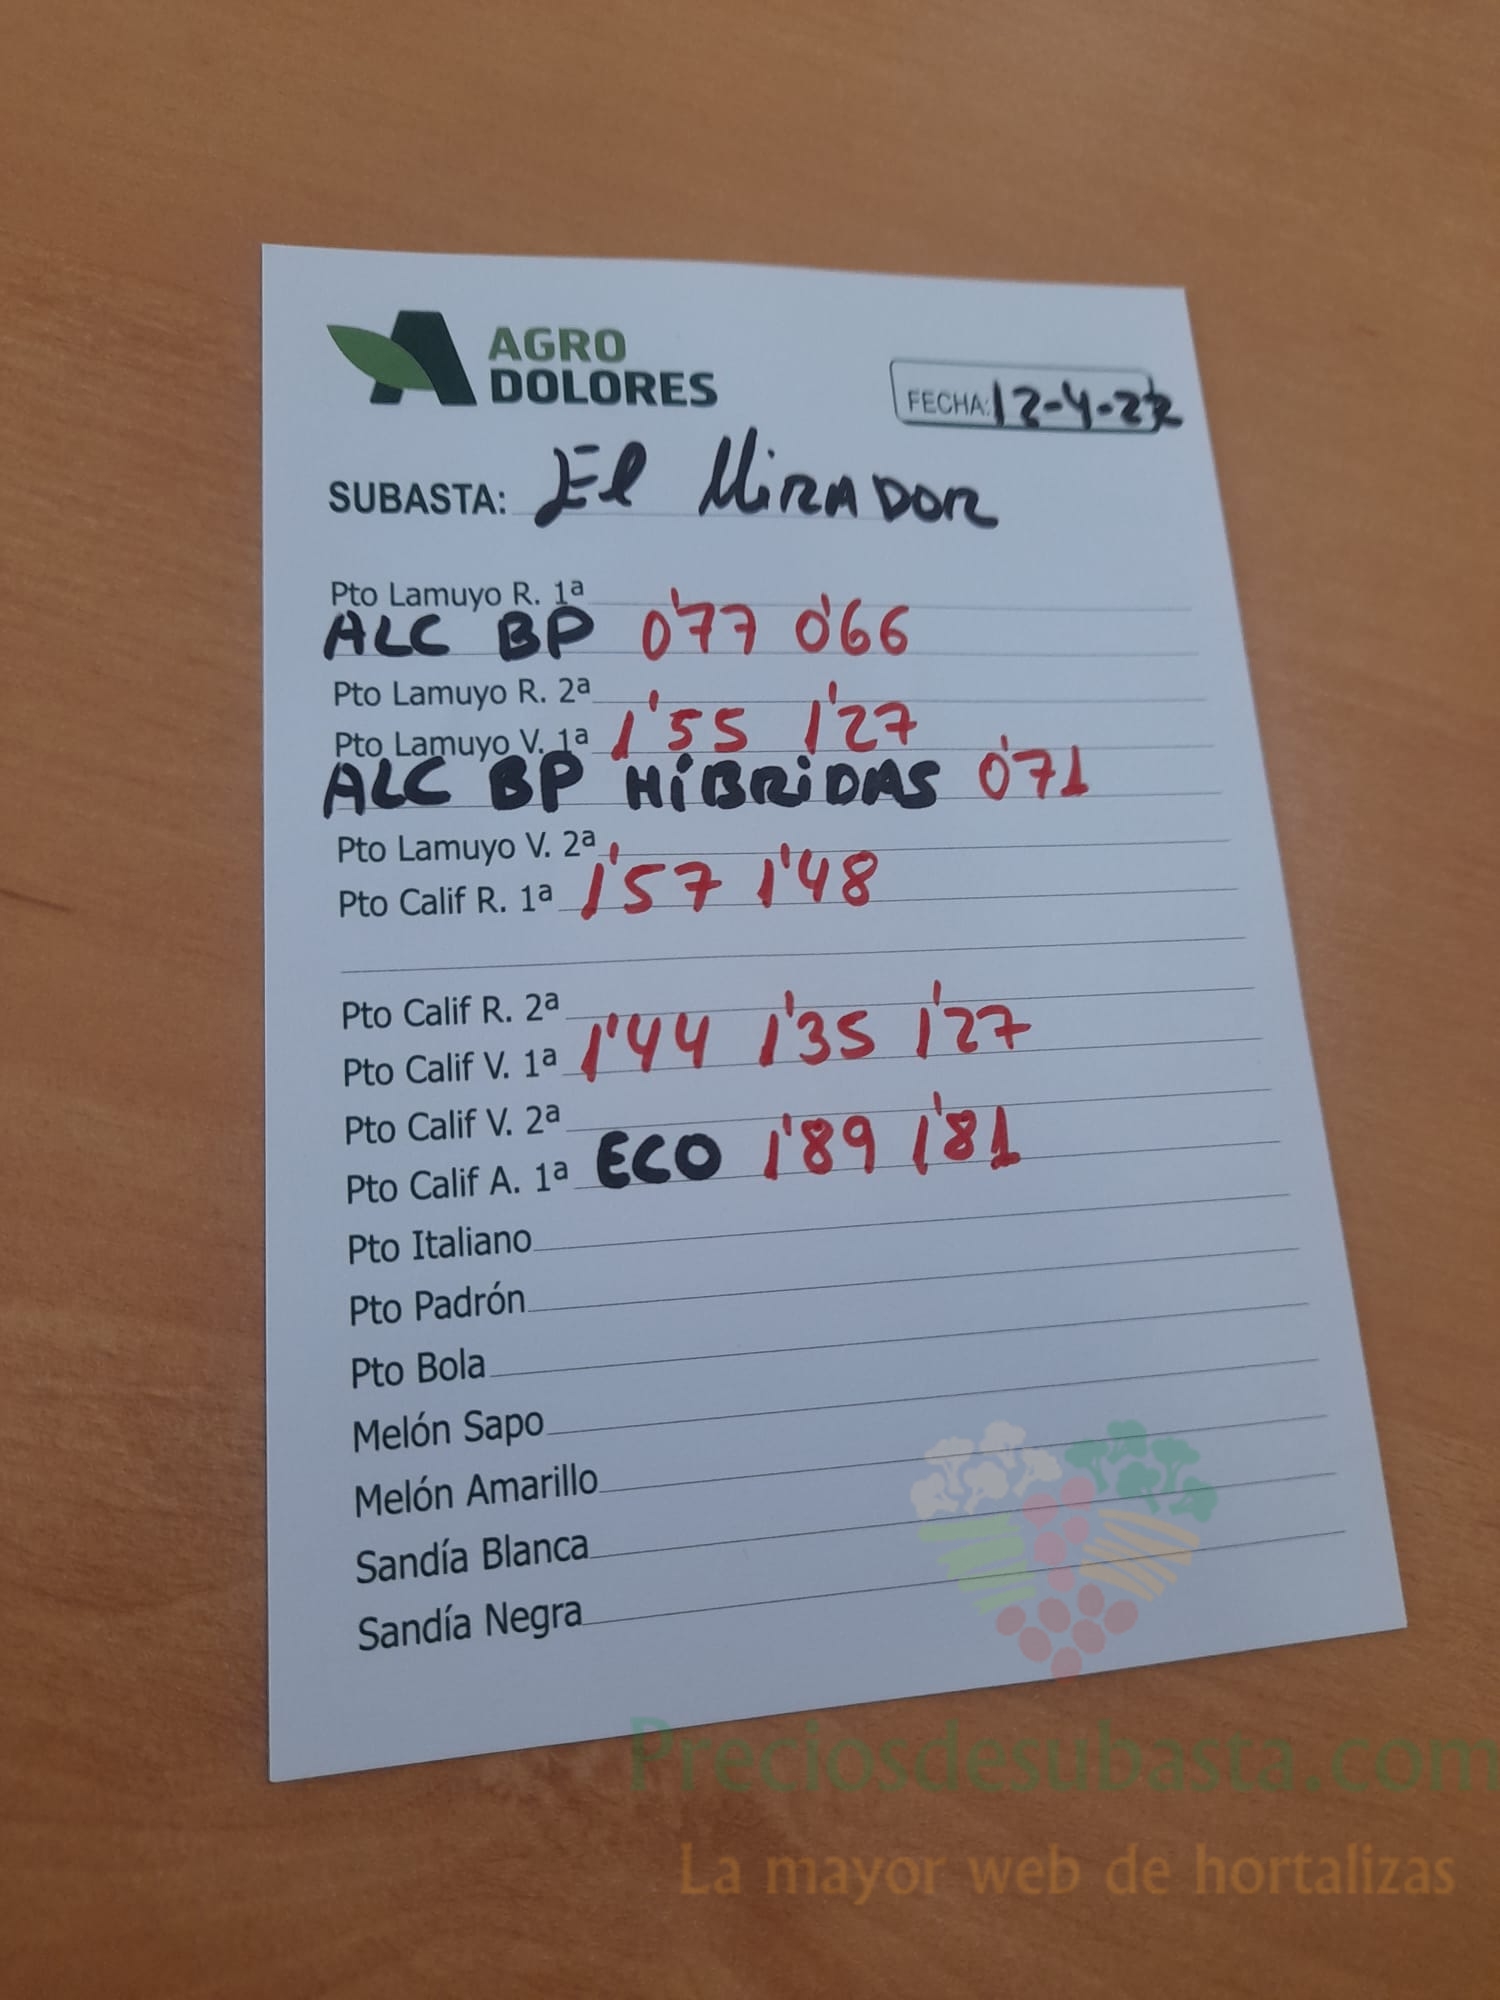 AGRO
DOLORES
FECHA: 12-4-22
SUBASTA: El MiRADOR
Pto Lamuyo R. 1ª
ALC BP 0'77 0'66
Pto Lamuyo R. 2ª
Pto Lamuyo V. 1ª 1'55 1'27
ALC BP HÍBRiDAS 0'71
Pto Lamuyo V. 2ª
Pto Calif R. 1ª 1'57 1'48
Pto Calif R. 2ª
Pto Calif V. 1ª 1'44 1'35 1'27
Pto Calif V. 2ª
Pto Calif A. 1ª ECO 1'89 1'81
Pto Italiano
Pto Padrón
Pto Bola
Melón Sapo
Melón Amarillo
Sandía Blanca
Sandía Negra
Preciosdesubasta.com
La mayor web de hortalizas